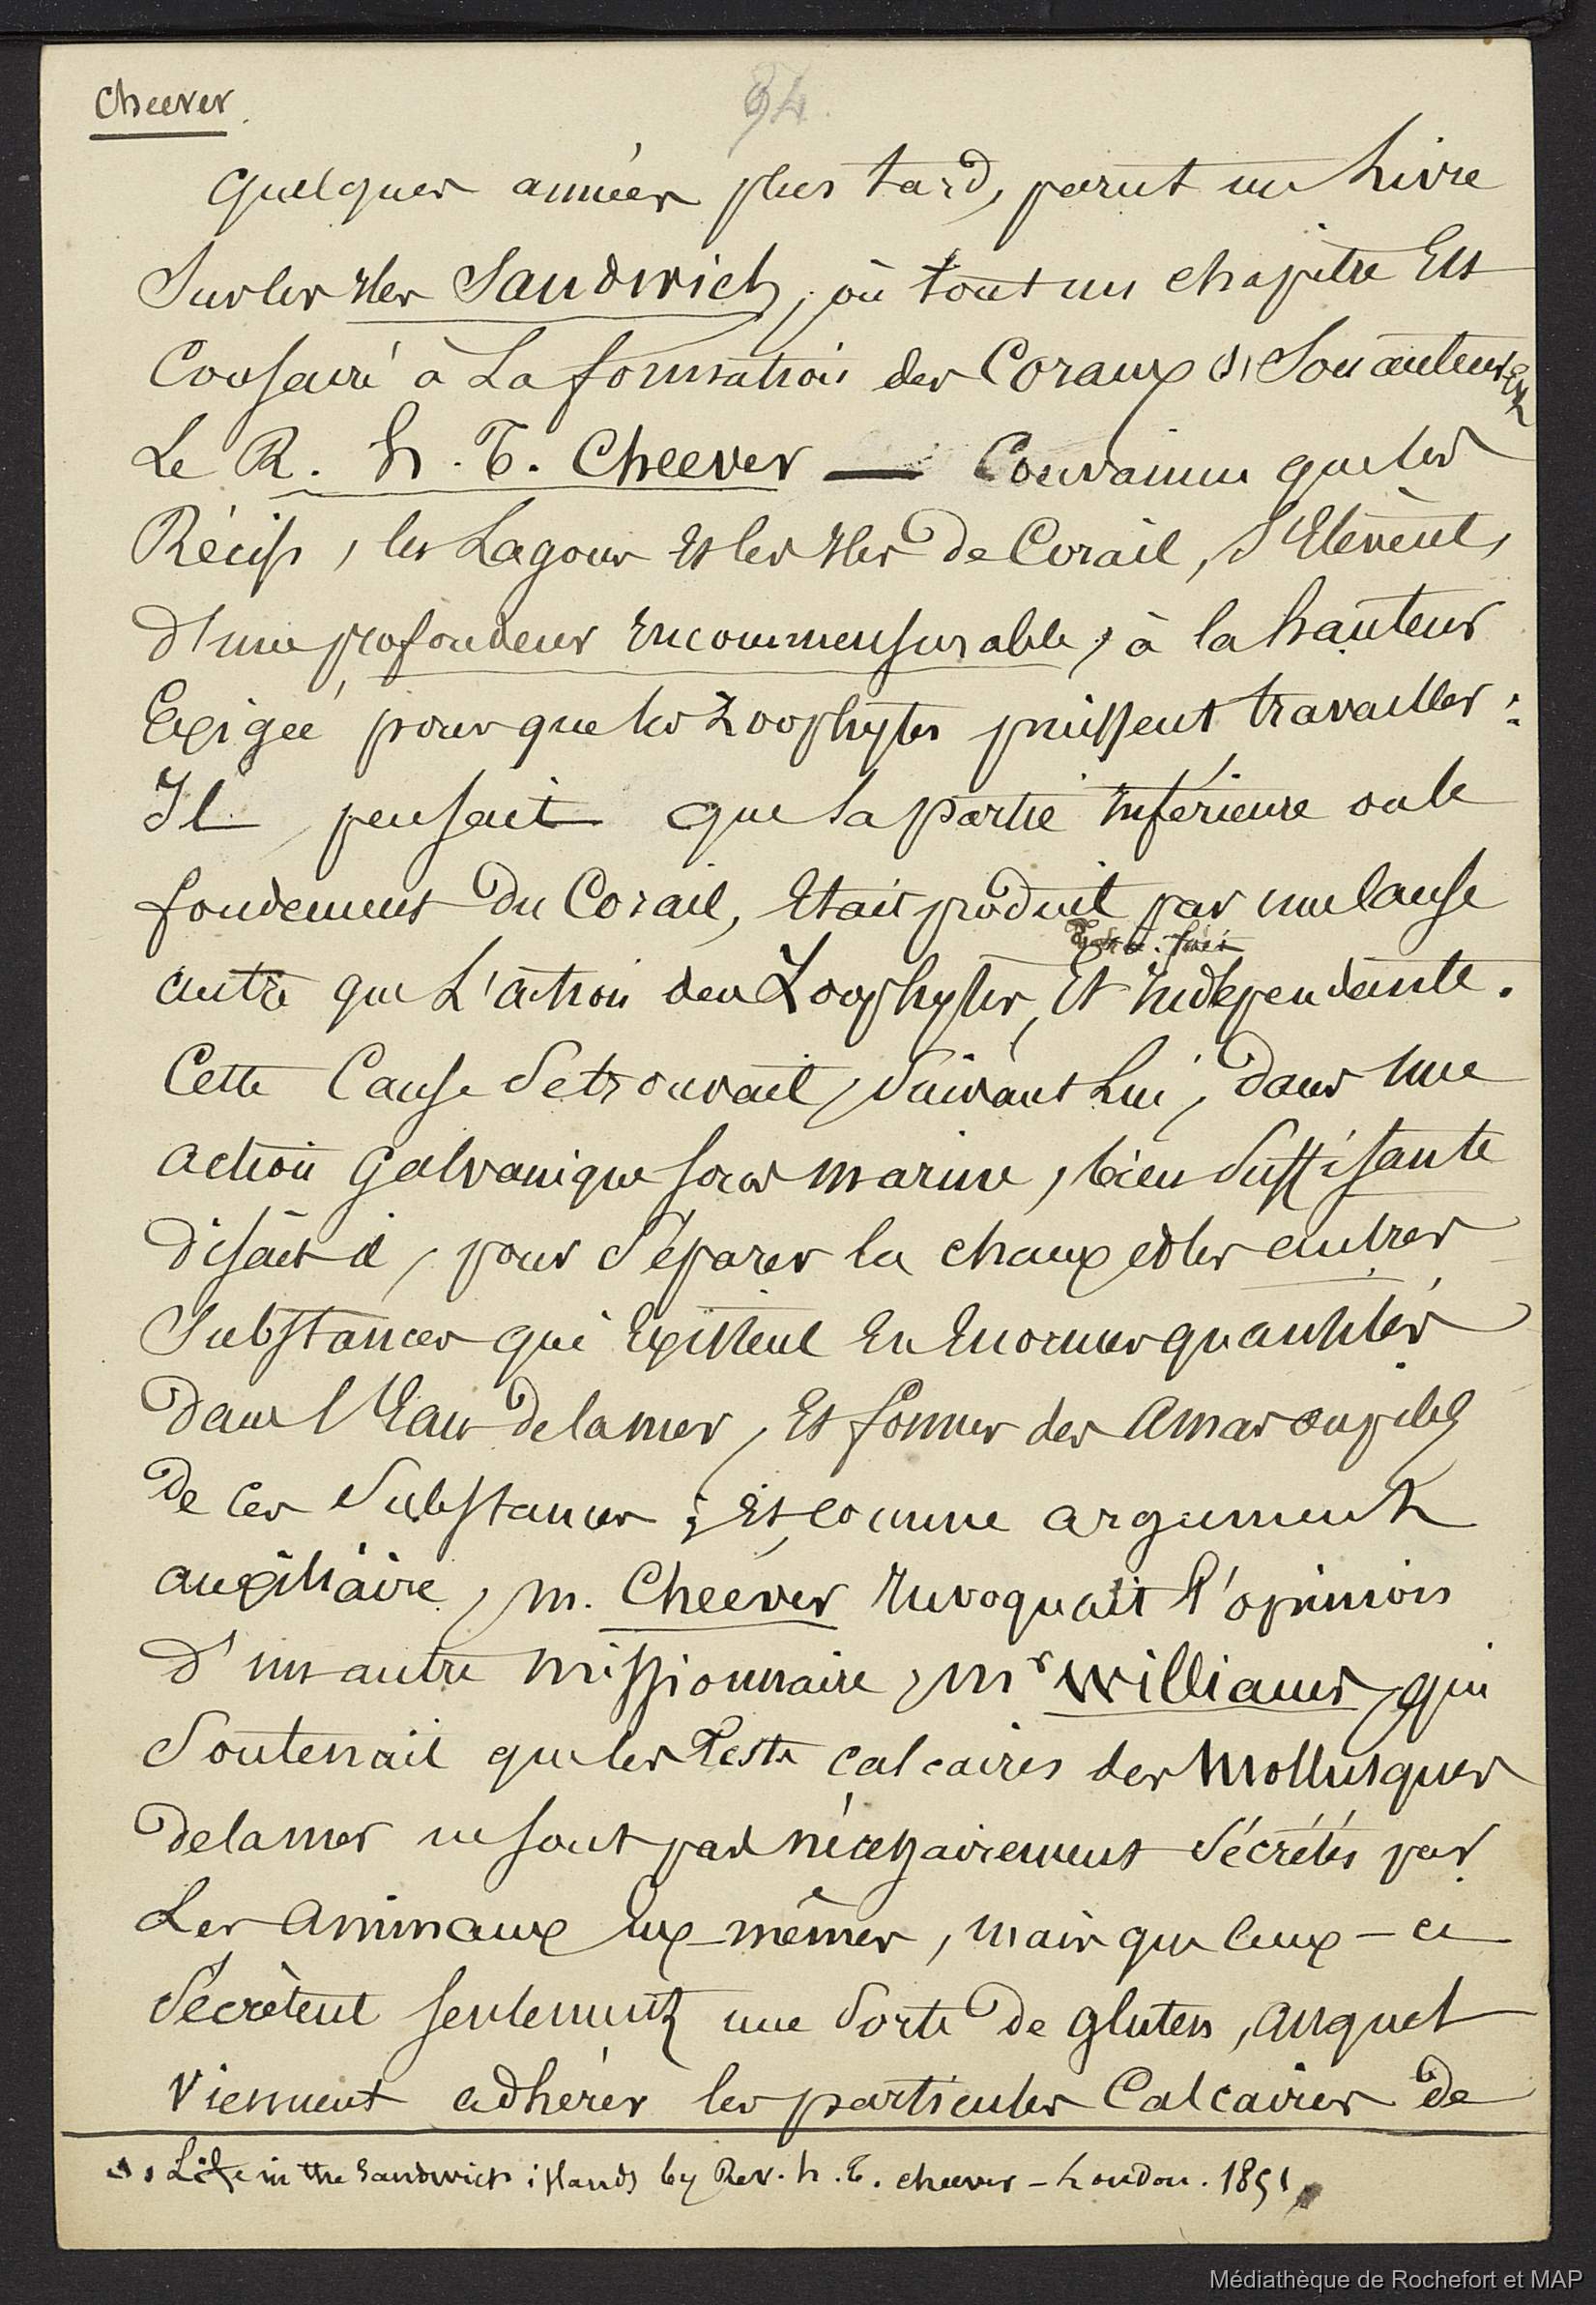 Cheever.
94.
Quelques années plus tard, parut un Livre
Sur les Iles Sandwich, où tout un chapitre Est
Consacré à La formation des Coraux (1) Son auteur Est
Le R. H. T. Cheever — Convaincu que les
Récifs, les Lagons Et les Iles de Corail, S'Elèvent,
d'une profondeur Incommensurable, à la hauteur
Exigée pour que les Zoophytes puissent travailler:
Il pensait que la partie Inférieure ou le
fondement du Corail, Etait produit par une Cause
autre que L'action des Zoophytes, Et Indépendante.
Cette Cause Se trouvait, Suivant Lui, dans Une
action Galvanique sous marine, bien Suffisante
disait-il, pour Séparer la chaux et les autres
Substances qui Existent En Enormes quantités
dans l'Eau de la mer, Et former des Amas
de Ces Substances; Et, comme argument
auxiliaire, M. Cheever Invoquait l'opinion
d'un autre Missionnaire, Mr Williams, qui
Soutenait que les Tests calcaires des Mollusques
de la mer ne sont pas nécessairement Sécrétés par
Les Animaux Eux mêmes, mais que Ceux-ci
Sécrètent seulement une Sorte de gluten, auquel
Viennent adhérer les particules Calcaires de
(1) Life in the Sandwich islands by Rev. h. T. cheever - London. 1851
Médiathèque de Rochefort et MAP